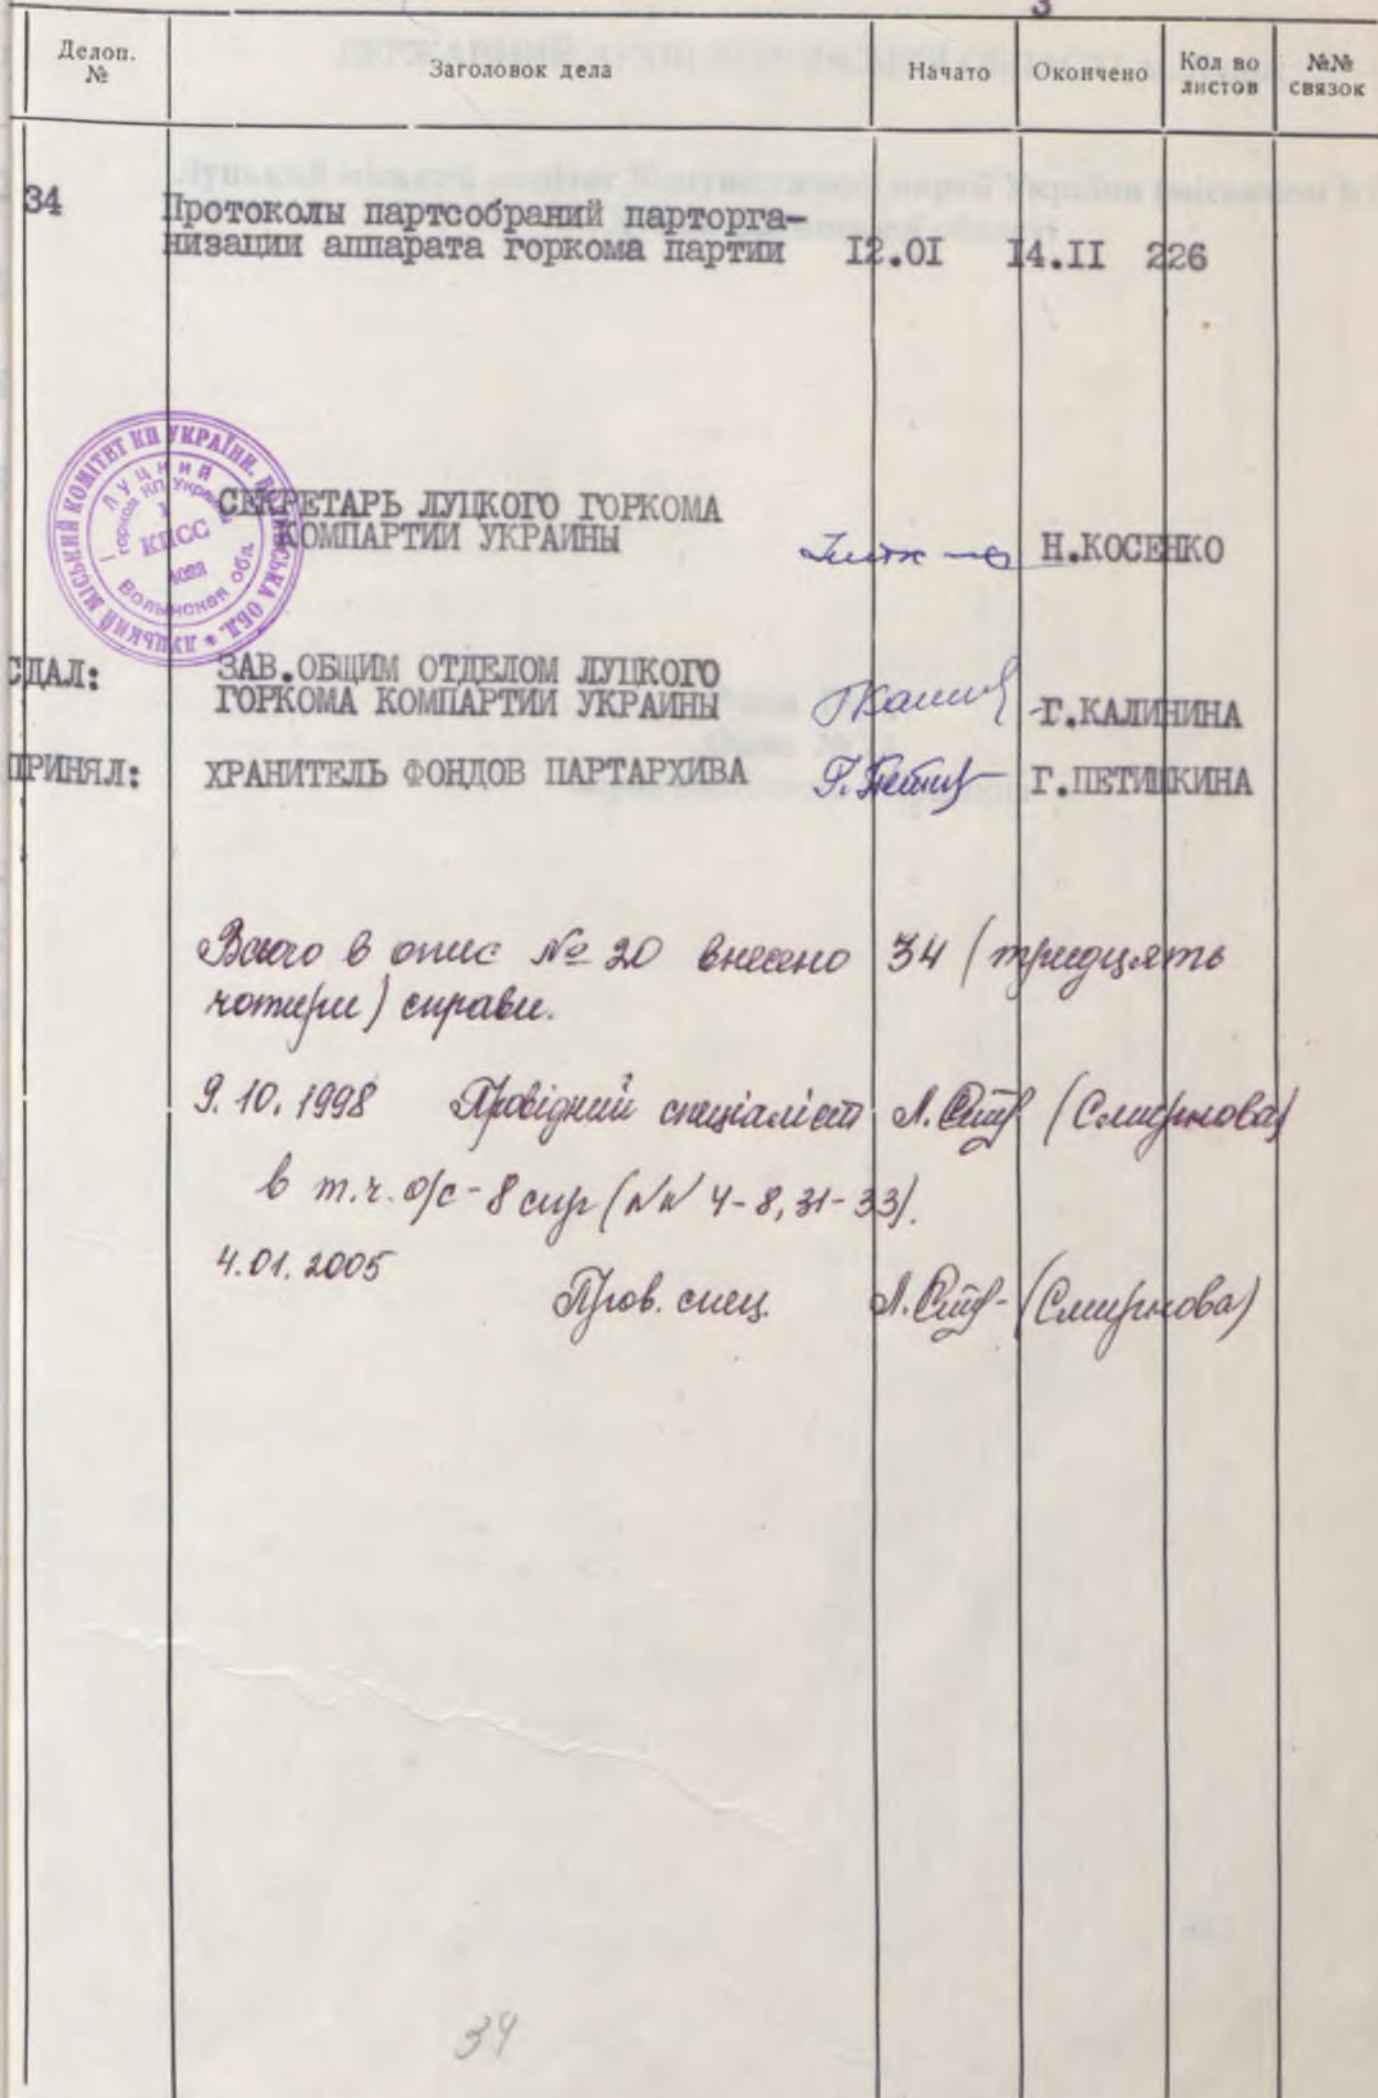 3
Делоп. №
Заголовок дела
Начато
Окончено
Кол во листов
№№ связок
34
Протоколы партсобраний парторга-
низации аппарата горкома партии I2.0I I4.II 226
ЛУЦЬКИЙ МІСЬКИЙ КОМІТЕТ КП УКРАЇНИ. ВОЛИНСЬКА ОБЛ. *
Луцкий
горком КП Украины
КПСС
Волынская обл.
СЕКРЕТАРЬ ЛУЦКОГО ГОРКОМА
КОМПАРТИИ УКРАИНЫ Н.КОСЕНКО
СДАЛ: ЗАВ.ОБЩИМ ОТДЕЛОМ ЛУЦКОГО
ГОРКОМА КОМПАРТИИ УКРАИНЫ Г.КАЛИНИНА
ПРИНЯЛ: ХРАНИТЕЛЬ ФОНДОВ ПАРТАРХИВА Г.ПЕТИШКИНА
Всього в опис № 20 внесено 34 (тридцять
чотири) справи.
9.10.1998 Провідний спеціаліст (Смирнова)
в т.ч. о/с - 8 спр (NN 4-8, 31-33).
4.01.2005
Пров. спец. (Смирнова)
34